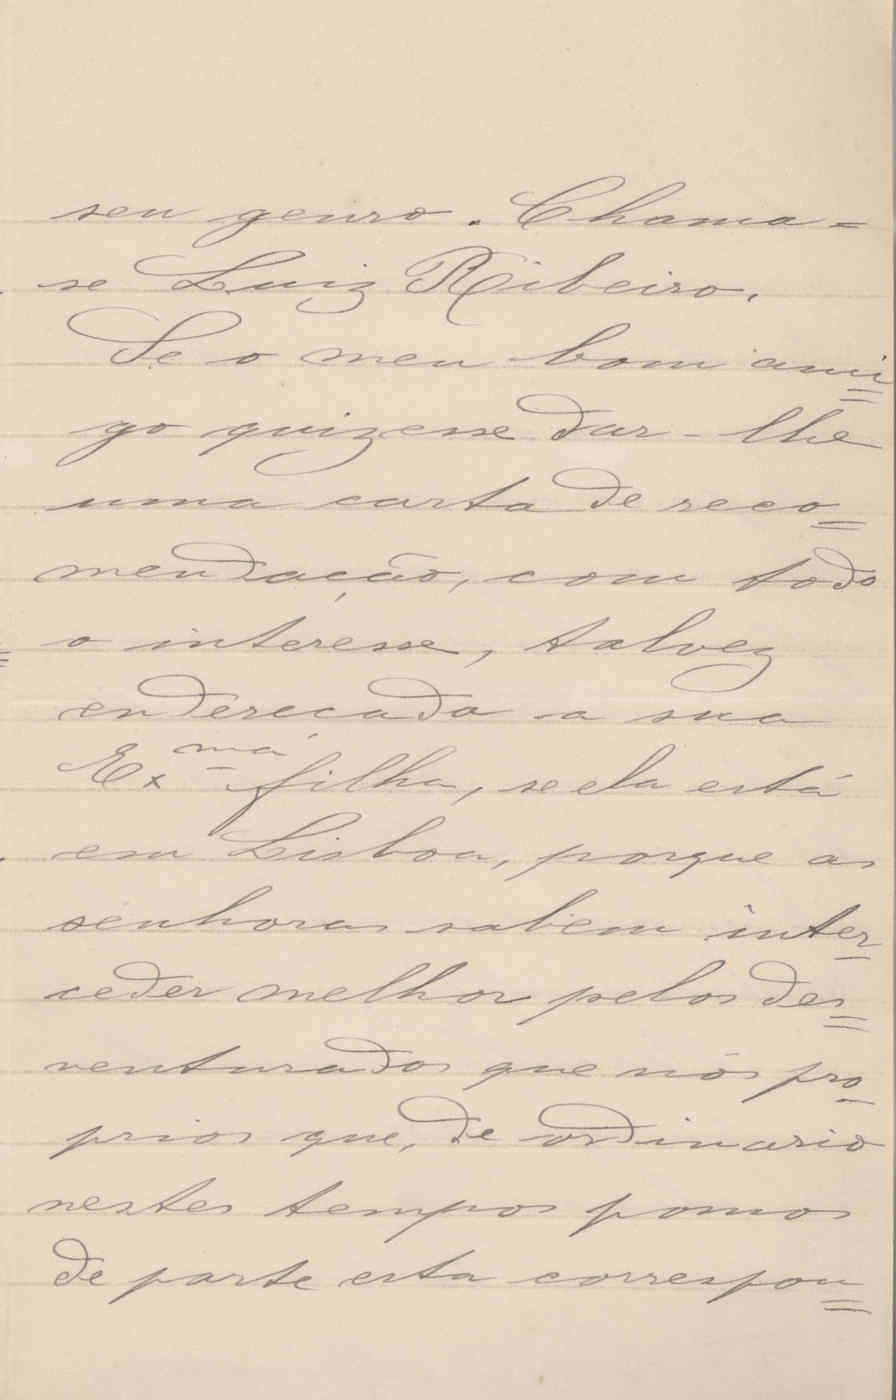 seu genro. Chama=
se Luiz Ribeiro.
Se o meu bom ami=
go quizesse dar-lhe
uma carta de reco=
mendação, com todo
o interesse, talvez
enderecada a sua
Exma filha, se ela está
em Lisboa, porque as
senhoras sabem inter-
ceder melhor pelos des=
venturados que nós pro-
prios que, de ordinario
nestes tempos pomos
de parte esta correspon=